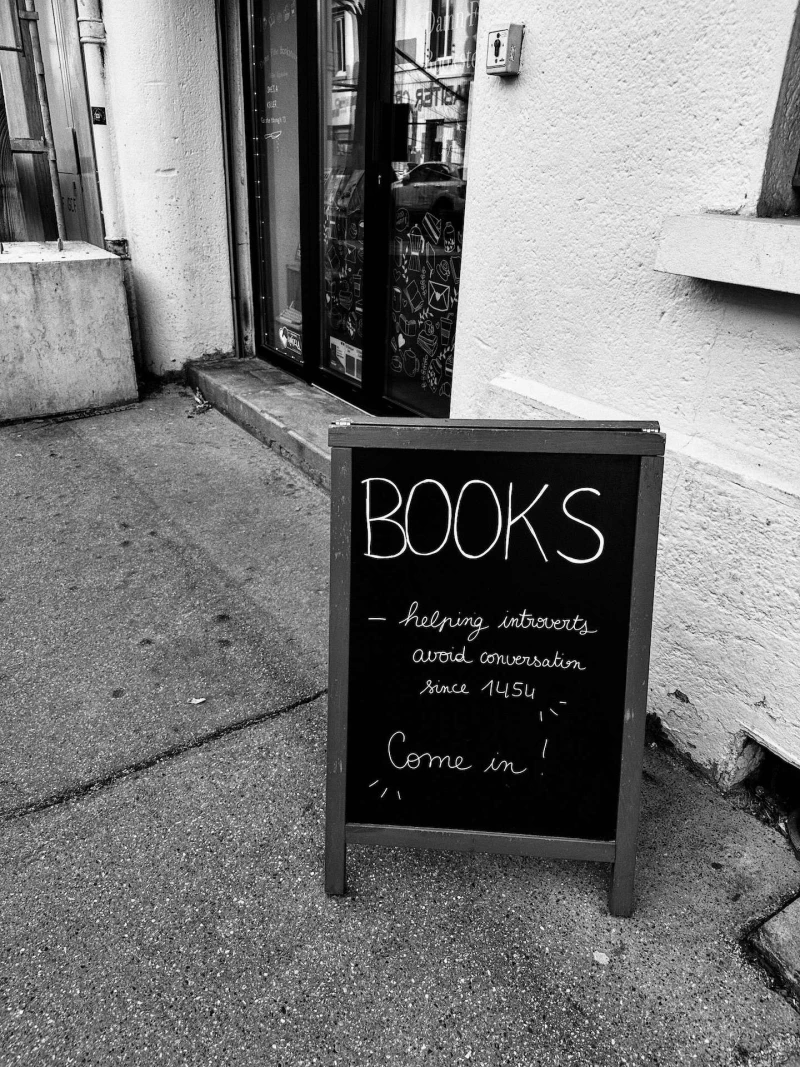 BOOKS
— helping introverts
avoid conversation
since 1454
Come in !